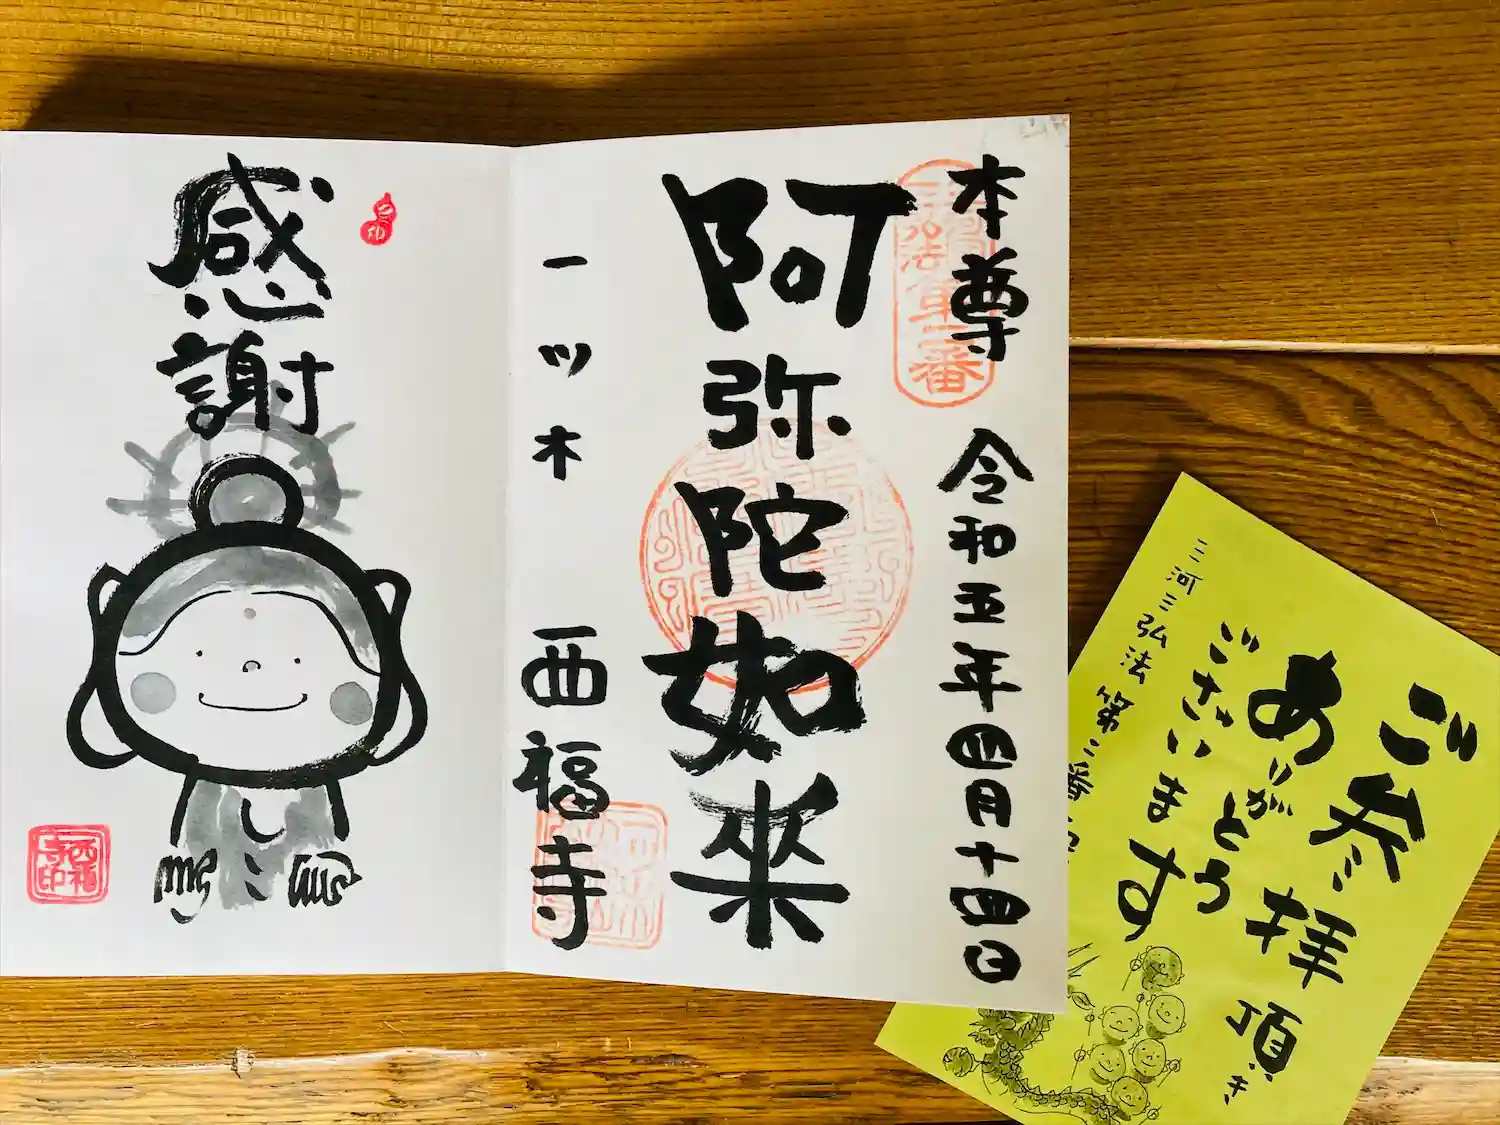 本尊
令和五年四月十四日
阿弥陀如来
一ツ木
西福寺
第二番
感謝
西福寺印
ご参拝頂き
ありがとう
ございます
三河三弘法第二番